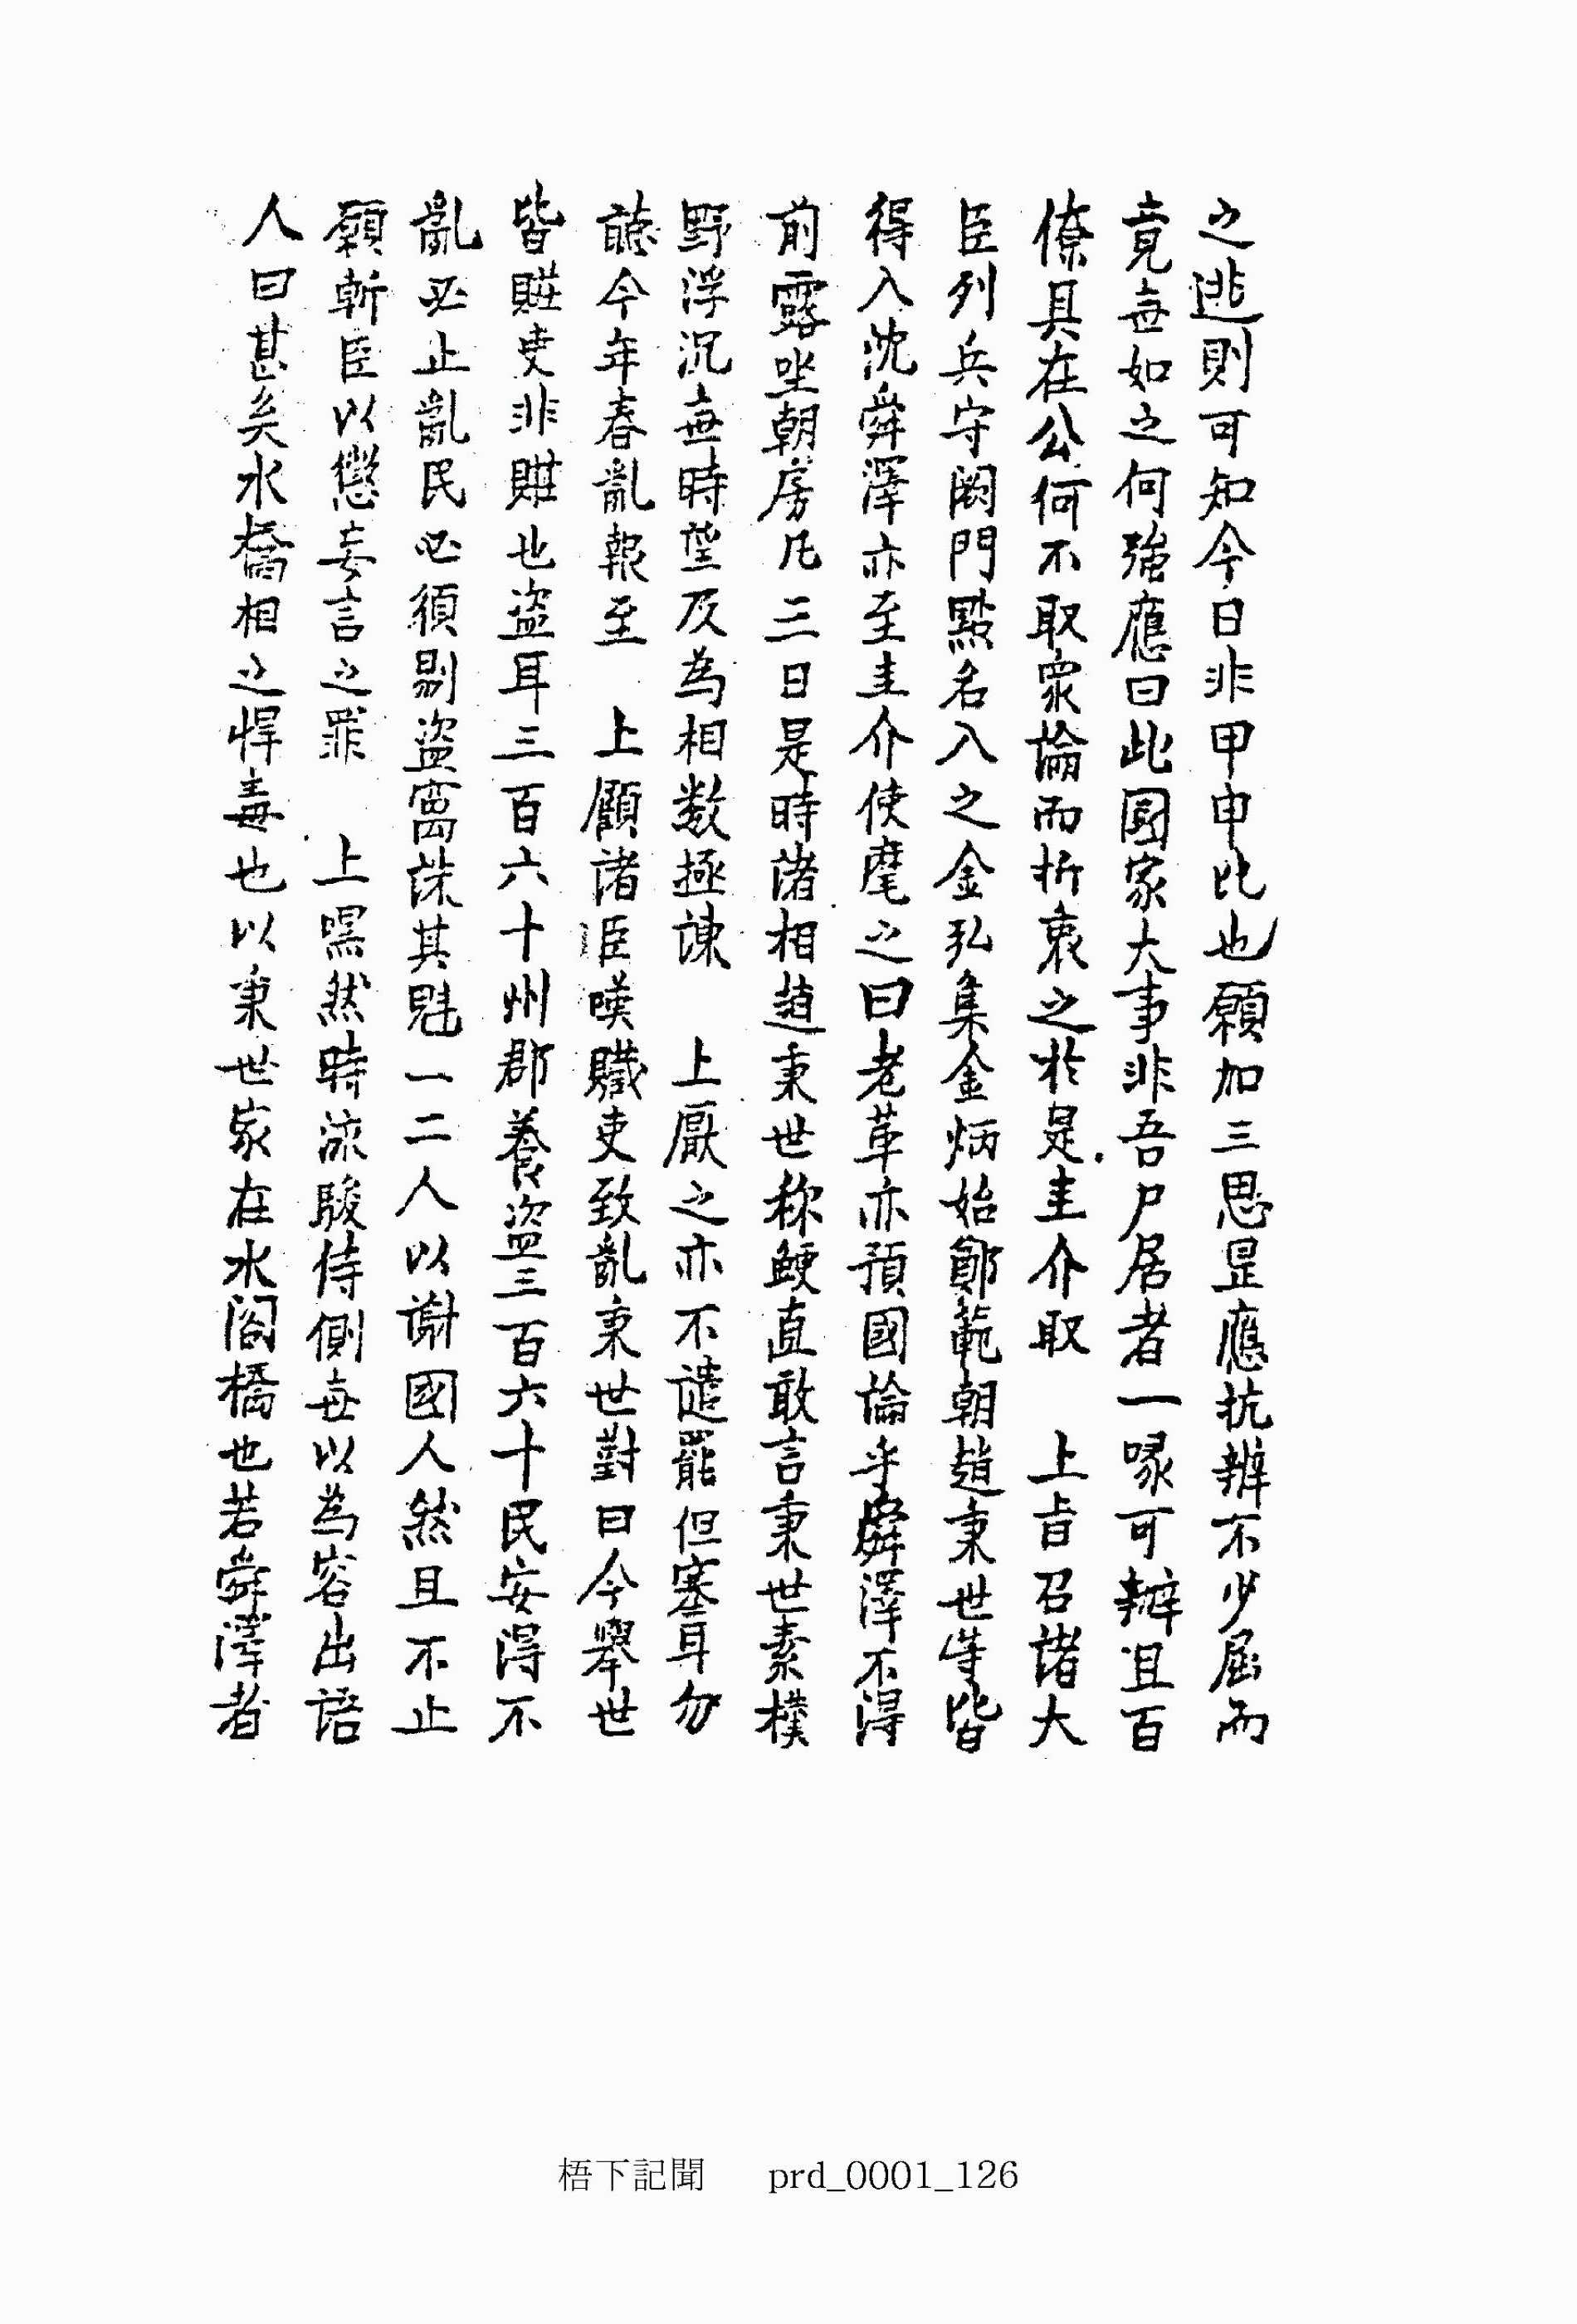 之逃則可知今日非甲申比也願加三思昰應抗辨不少屈而
竟無如之何強應曰此國家大事非吾尸居者一喙可辦且百
僚具在公何不取衆論而折衷之於是圭介取 上旨召諸大
臣列兵守闕門點名入之金弘集金炳始鄭範朝趙秉世等皆
得入沈舜澤亦至圭介使麾之曰老革亦預國論乎舜澤不得
前露坐朝房凡三日是時諸相趙秉世称鯁直敢言秉世素樸
野浮沉無時望及為相数極諫 上厭之亦不譴罷但塞耳勿
聽今年春亂報至 上顧諸臣嘆贓吏致亂秉世對曰今舉世
皆賍吏非賍也盜耳三百六十州郡養盜三百六十民安得不
亂必止亂民必須剔盜窩誅其魁一二人以謝國人然且不止
願斬臣以懲妄言之罪 上嘿然時泳駿侍側每以為容出語
人曰甚矣水橋相之悍毒也以秉世家在水閣橋也若舜澤者
梧下記聞 prd_0001_126